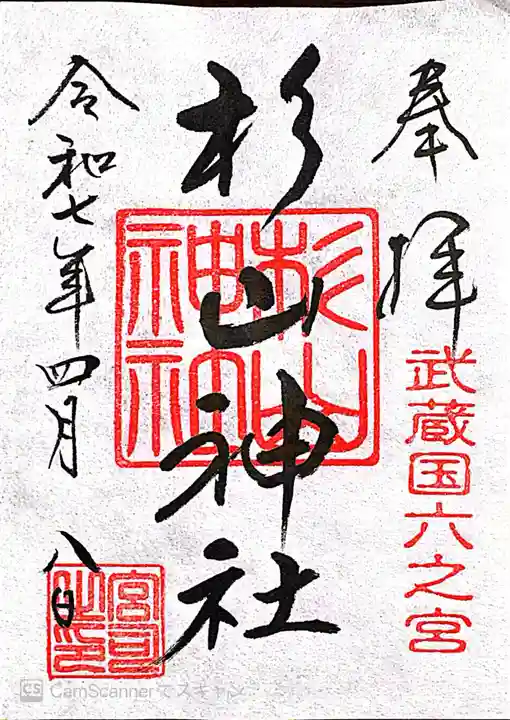 奉拝
武蔵国六之宮
杉山神社
杉山神社
令和七年四月八日
宮司之印
CS CamScannerでスキャン